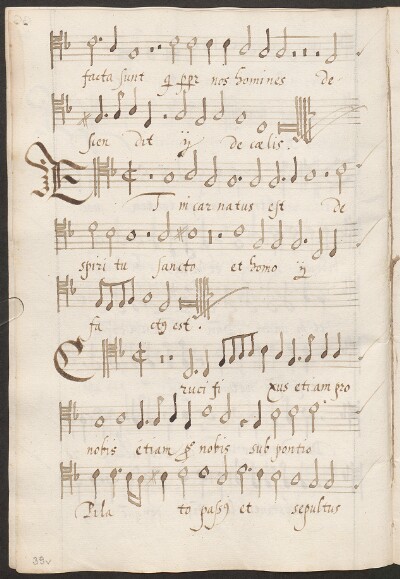 facta sunt q ppr nos homines de
scen dit ij de cœlis.
ET in car natus est de
spiri tu sancto et homo ij
fa ctq est.
Cruci fi xus etiam pro
nobis etiam p nobis sub pontio
Pila to passq et sepultus
39v